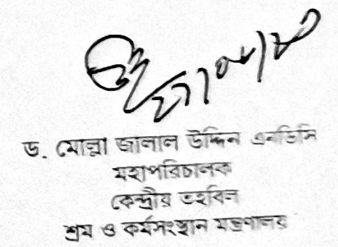 ড. মোল্লা জালাল উদ্দিন এনডিসি
মহাপরিচালক
কেন্দ্রীয় তহবিল
শ্রম ও কর্মসংস্থান মন্ত্রণালয়